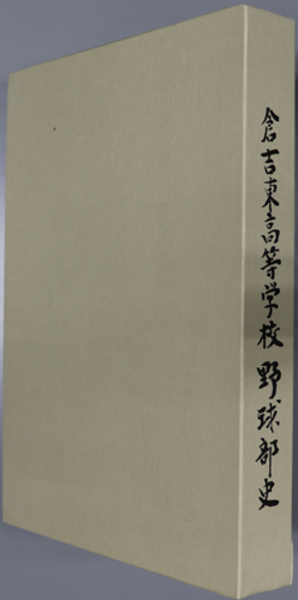 倉吉東高等学校野球部史